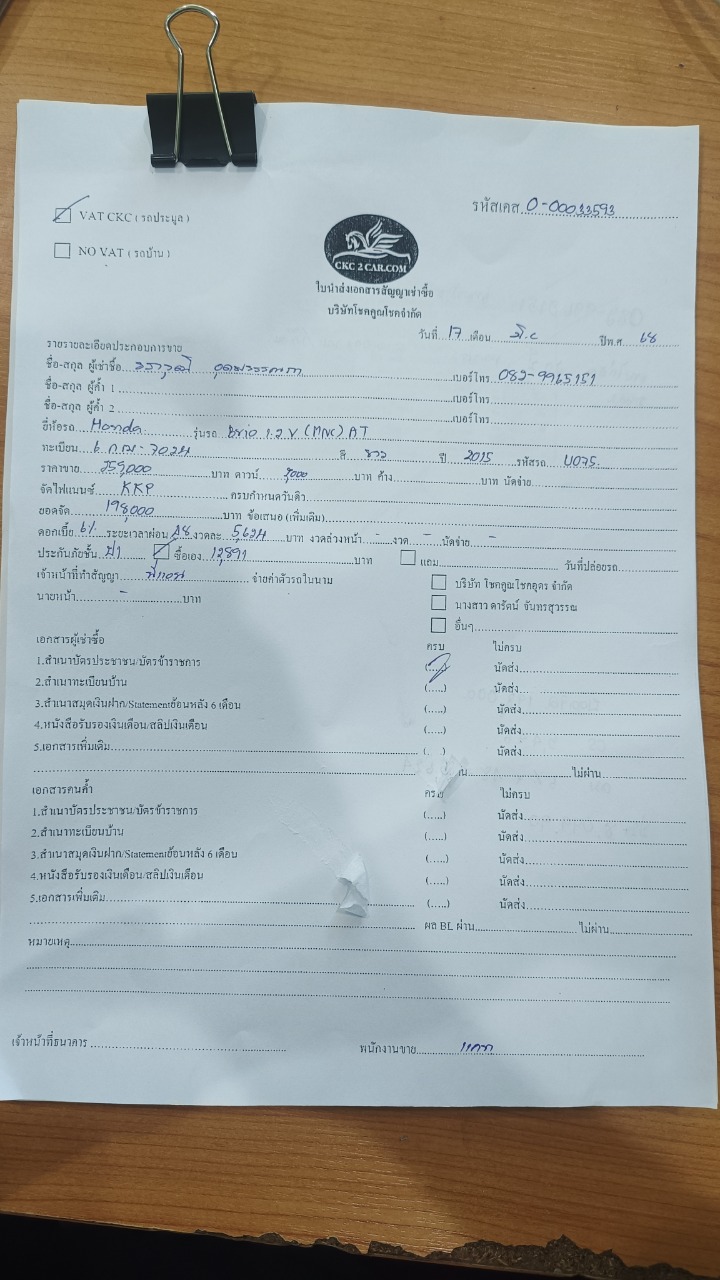 รหัสเคส 0-00033593
VAT CKC ( รถประมูล )
NO VAT ( รถบ้าน )
CKC 2 CAR.COM
ใบนำส่งเอกสารสัญญาเช่าซื้อ
บริษัทโชคคูณโชคจำกัด
วันที่ 17 เดือน มี.ค ปีพ.ศ. 68
รายรายละเอียดประกอบการขาย
ชื่อ-สกุล ผู้เช่าซื้อ เบอร์โทร. 082-9965151
ชื่อ-สกุล ผู้ค้ำ 1 เบอร์โทร.
ชื่อ-สกุล ผู้ค้ำ 2 เบอร์โทร.
ยี่ห้อรถ Honda รุ่นรถ Brio 1.2 V (MNC) AT
ทะเบียน สี ขาว ปี 2015 รหัสรถ U075
ราคาขาย 259,000 บาท ดาวน์ บาท ค้าง บาท นัดจ่าย
จัดไฟแนนซ์ KKP ครบกำหนดวันดิว
ยอดจัด 198,000 บาท ข้อเสนอ (เพิ่มเติม)
ดอกเบี้ย 6% ระยะเวลาผ่อน 48 งวดละ 5,624 บาท งวดล่วงหน้า - งวด - นัดจ่าย -
ประกันภัยชั้น ป1 ซื้อเอง 12,891 บาท แถม วันที่ปล่อยรถ
เจ้าหน้าที่ทำสัญญา จ่ายค่าตัวรถในนาม
บริษัท โชคคูณโชคอุดร จำกัด
นายหน้า - บาท
นางสาว ดารัตน์ จันทรสุวรรณ
อื่นๆ
เอกสารผู้เช่าซื้อ ครบ ไม่ครบ
1.สำเนาบัตรประชาชน/บัตรข้าราชการ (.....) นัดส่ง
2.สำเนาทะเบียนบ้าน (.....) นัดส่ง
3.สำเนาสมุดเงินฝาก/Statementย้อนหลัง 6 เดือน (.....) นัดส่ง
4.หนังสือรับรองเงินเดือน/สลิปเงินเดือน (.....) นัดส่ง
5.เอกสารเพิ่มเติม (.....) นัดส่ง
ไม่ผ่าน
เอกสารคนค้ำ ครบ ไม่ครบ
1.สำเนาบัตรประชาชน/บัตรข้าราชการ (.....) นัดส่ง
2.สำเนาทะเบียนบ้าน (.....) นัดส่ง
3.สำเนาสมุดเงินฝาก/Statementย้อนหลัง 6 เดือน (.....) นัดส่ง
4.หนังสือรับรองเงินเดือน/สลิปเงินเดือน (.....) นัดส่ง
5.เอกสารเพิ่มเติม (.....) นัดส่ง
ผล BL ผ่าน ไม่ผ่าน
หมายเหตุ
เจ้าหน้าที่ธนาคาร พนักงานขาย